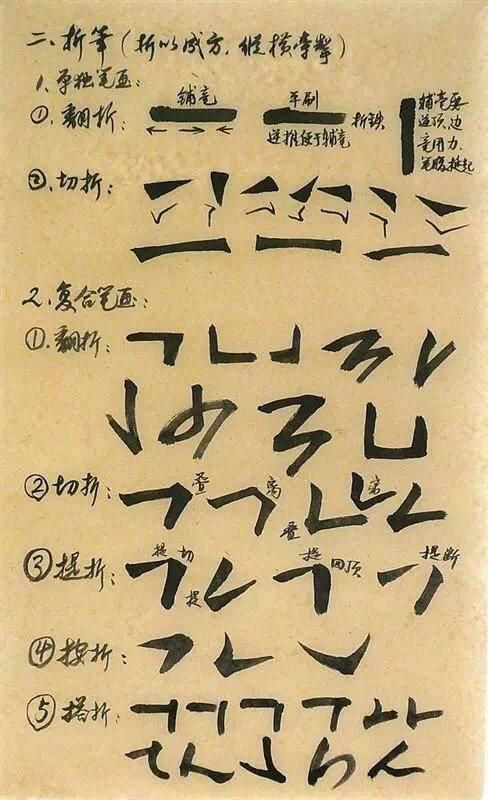 二、折笔(折以成方,纵横牵掣)
1、单独笔画:
①、翻折: 铺毫 平刷 折铁
送推便于辅毫
铺毫要
送顶,边
毫用力,
笔腹挺起
②、切折:
2、复合笔画:
①、翻折:
②切折: 叠 离 叠 离
③提折: 提 切 提 提 回顶 提断
④按折:
⑤搭折: